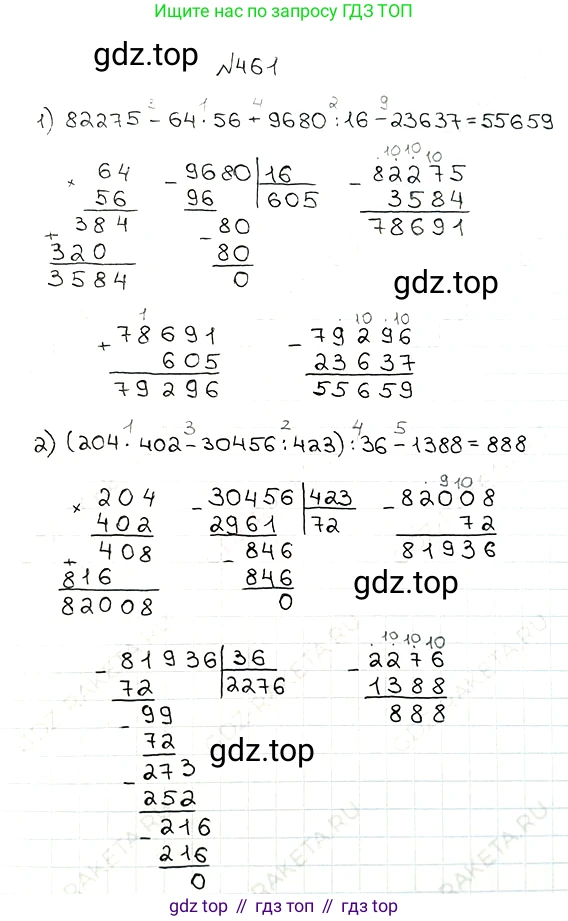 Ищите нас по запросу ГДЗ ТОП
gdz.top
№461
1) 82275 - 64 · 56 + 9680 : 16 - 23637 = 55659
3 1 4 2 9
× 64
56
384
+
320
3584
- 9680 | 16
96 605
- 80
80
0
10 10 10
- 82275
3584
78691
gdz.top
1
+ 78691
605
79296
10 10
- 79296
23637
55659
2) (204 · 402 - 30456 : 423) : 36 - 1388 = 888
1 3 2 4 5
× 204
402
408
+
816
82008
- 30456 | 423
2961 72
- 846
846
0
9 10
- 82008
72
81936
gdz.top
- 81936 | 36
72 2276
- 99
72
- 273
252
- 216
216
0
10 10 10
- 2276
1388
888
gdz.top
RAKETA.RU
gdz top // гдз топ // gdz.top